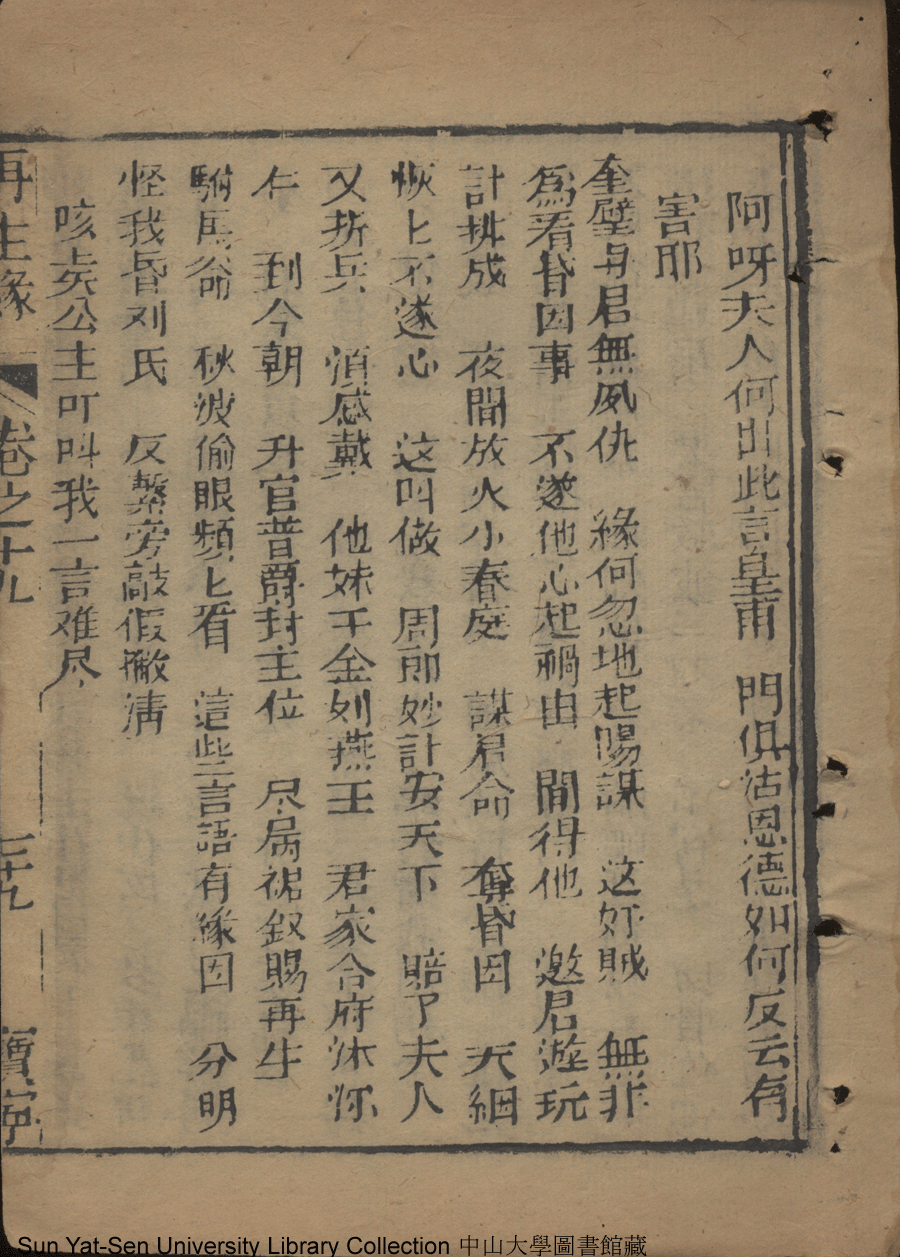 阿呀夫人何出此言皇甫 門俱沾恩德如何反云有
害耶
奎壁与君無夙仇 緣何忽地起陽謀 这奸賊 無非
為着昏因事 不遂他心起禍由 聞得他 邀君遊玩
計排成 夜間放火小春庭 謀君命 奪昏因 天網
恢〻不遂心 这叫做 周郎妙計安天下 賠了夫人
又折兵 須感戴 他妹千金列燕王 君家合府沐
仁 到今朝 升官普爵封主位 尽属裙釵賜再生
駙馬爺 秋波偷眼頻〻看 這些言語有緣因 分明
怪我昏刘氏 反繫旁敲假撇清
咳矣公主吓叫我一言难尽
再生緣 卷之十九 三十九 寶寧
Sun Yat-Sen University Library Collection 中山大學圖書館藏